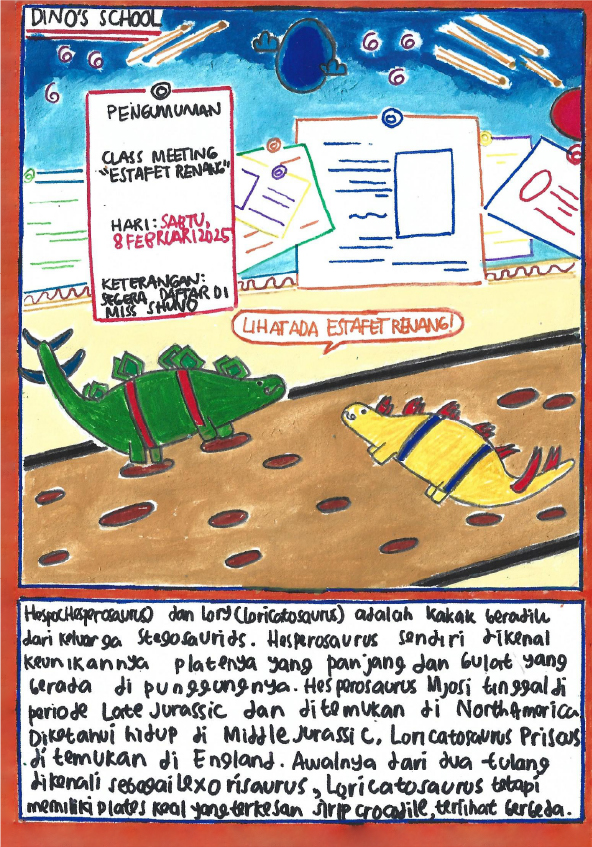 DINO'S SCHOOL
PENGUMUMAN
CLASS MEETING
"ESTAFET RENANG"
HARI: SABTU,
8 FEBRUARI 2025
KETERANGAN:
SEGERA DAFTAR DI
MISS SHUNO
LIHAT ADA ESTAFET RENANG!
Hespo(Hesperosaurus) dan Lory(Loricatosaurus) adalah kakak beradik
dari keluarga Stegosaurids. Hesperosaurus sendiri dikenal
keunikannya platenya yang panjang dan bulat yang
berada di punggungnya. Hesperosaurus Mjosi tinggal di
periode Late Jurassic dan ditemukan di North America
Diketahui hidup di Middle Jurassic, Loricatosaurus Priscus
ditemukan di England. Awalnya dari dua tulang
dikenali sebagai Lexorisaurus, Loricatosaurus tetapi
memiliki plates yang terkesan crocodile, terlihat berbeda.